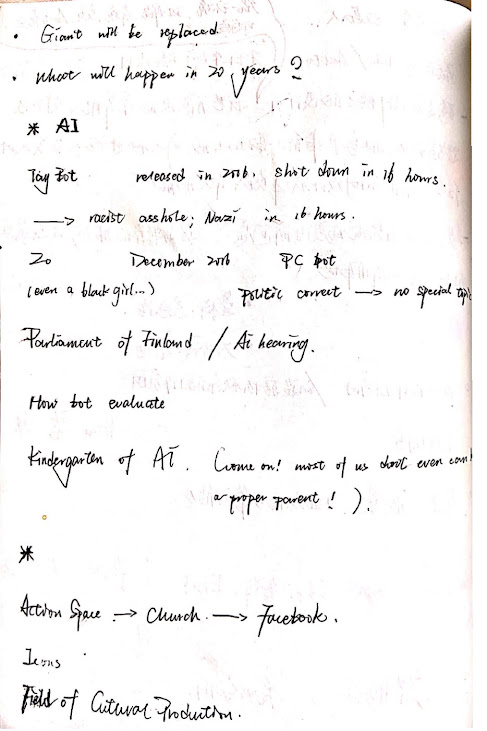 • Giant will be replaced
• What will happen in 20 years?
* AI
Tay Bot released in 2016, shut down in 16 hours.
→ racist asshole; Nazi in 16 hours.
Zo December 2016 PC bot
(even a black girl...) politic correct → no special topic
Parliament of Finland / Ai hearing.
How bot evaluate
Kindergarten of AI. (come on! most of us don't even
a proper parent! ).
*
Action Space → Church → Facebook.
Icons
Field of Cultural Production.